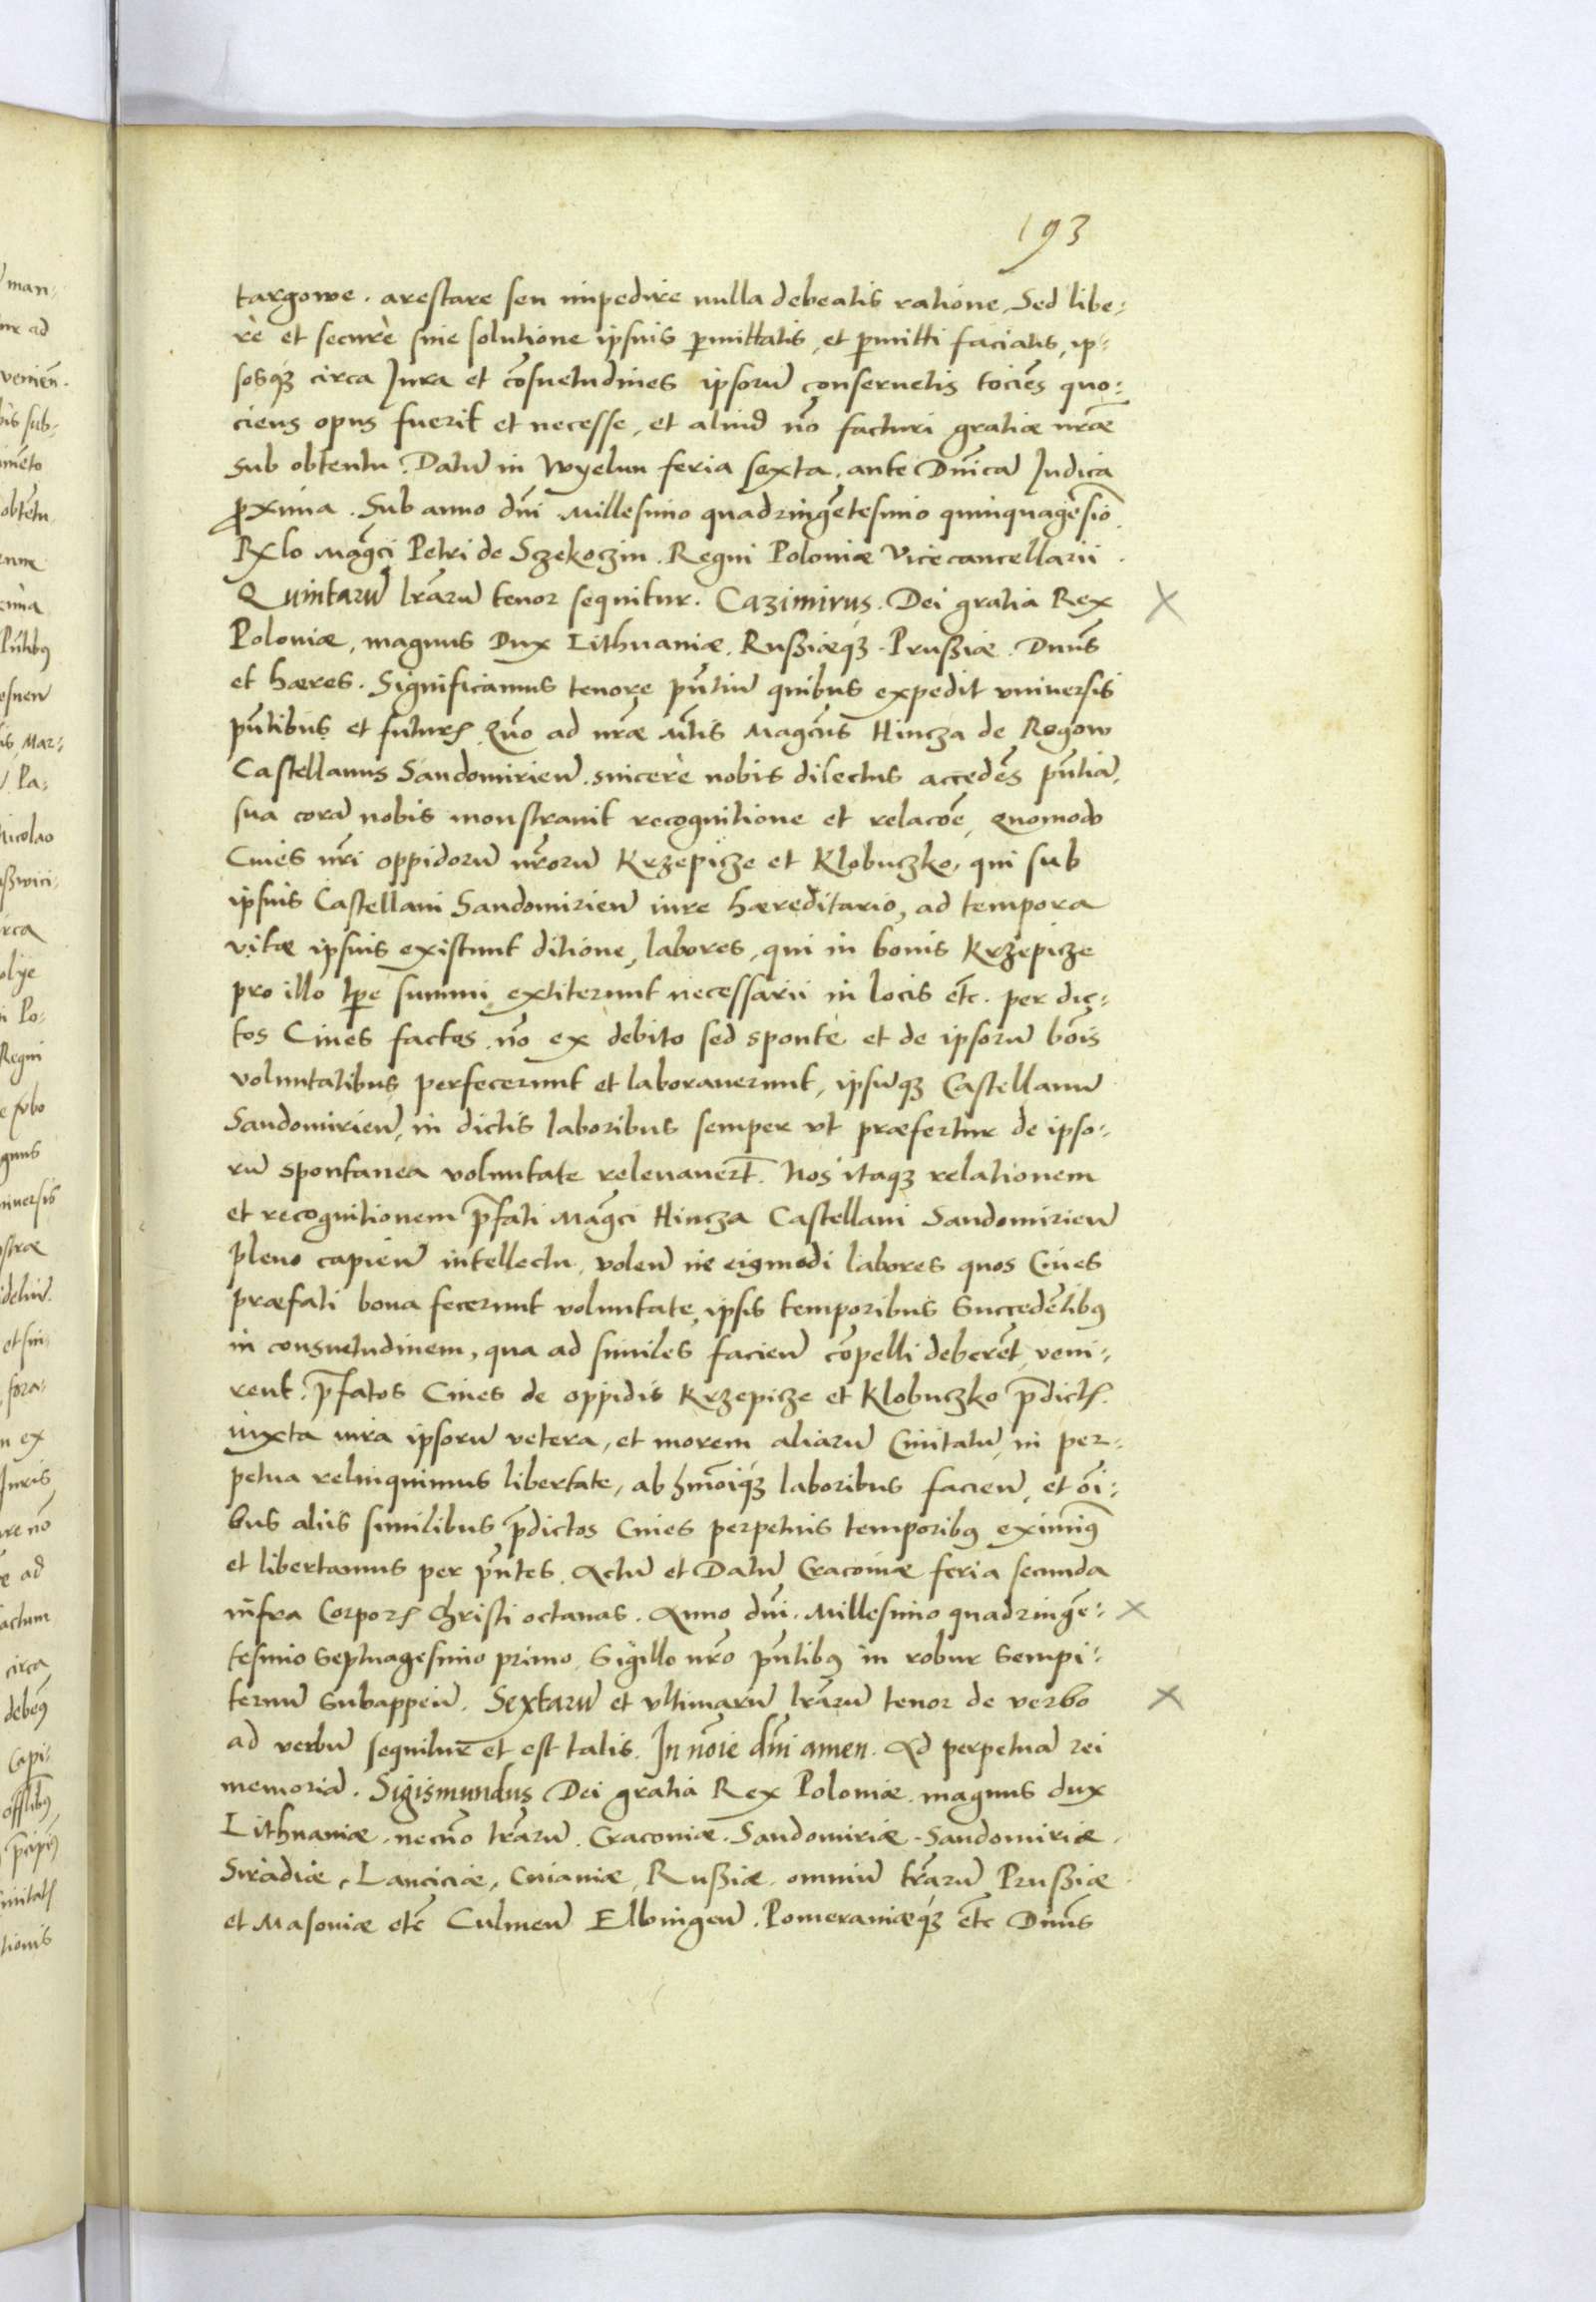 193
targowe. arestare seu impedire nulla debeatis ratione, Sed libe:
rè et securè sine solutione ipsius p̱mittatis, et p̱mitti faciatis, ip:
sosq3 circa Jura et cōsuetudines ipsorū conseruetis tociēs quo:
ciens opus fuerit et necesse, et aliud nō facturi gratiæ nr̄æ
sub obtentu. Datū in Wyelun feria sexta. ante Dn̄icā Judica
ꝓxima. Sub anno dn̄i Millesimo quadringētesimo quinquagesīo
Rx̄lo Mag̃ci Petri de Sczekoczin. Regni Poloniæ Vicecancellarii.
Quintarū lr̄arū tenor sequitur. Cazimirus. Dei gratia Rex
Poloniæ, magnus Dux Lithuaniæ. Rußiæq3. Prußiæ. Dn̄us
et hæres. Significamus tenore pn̄tiū quibus expedit vniuersis
pn̄tibus et futurꝭ Quō ad nr̄æ M̄tis Mag̃cus Hincza de Rogow
Castellanus Sandomirien̄. sincerè nobis dilectus accedēs pn̄tiā
sua corā nobis monstrauit recognitione et relacōe, Quomodo
Ciues nr̄i oppidorū nr̄orū Krzepicze et Klobuczko, qui sub
ipsius Castellani Sandomirien̄ iure hæreditario, ad tempora
vitæ ipsius existunt ditione, labores, qui in bonis Krzepicze
pro illo tp̄e summi extiterunt necessarii in locis etc̄. per dic:
tos Ciues factos nō ex debito sed spontè et de ipsorū bōis
voluntatibus perfecerunt et laborauerunt, ipsūq3 Castellanū
Sandomirien̄, in dictis laboribus semper vt præfertur de ipso:
rū spontanea voluntate releuauert̄. Nos itaq3 relationem
et recognitionem p̄fati Mag̃ci Hincza Castellani Sandomirien̄
pleno capien̄ intellectu, volen̄ ne eiꝰmodi labores quos Ciues
præfati bona fecerunt voluntate, ipsis temporibus Succedētibꝰ
in consuetudinem, qua ad similes facien̄ cōpelli deberēt, veni:
rent. p̄fatos Ciues de oppidis Krzepicze et Klobuczko p̄dictꝭ.
iuxta iura ipsorū vetera, et morem aliarū Ciuitatū, in per:
petua relinquimus libertate, ab hm̄oiq3 laboribus facien̄, et oī:
bus aliis similibus p̄dictos Ciues perpetuis temporibꝰ eximīꝰ
et libertamus per pn̄tes. Actū et Datū Cracouiæ feria secunda
infra Corporꝭ Christi octauas. Anno dn̄i. Millesimo quadringē:
tesimo Septuagesimo primo, Sigillo nr̄o pn̄tibꝰ in robur Sempi:
ternū Subappen̄. Sextarū et vltimarū lr̄arū tenor de verbo
ad verbū sequitur et est talis. In nōie dn̄i amen. Ad perpetuā rei
memoriā. Sigismundus Dei gratia Rex Poloniæ. magnus dux
Lithuaniæ. necnō tr̄arū. Cracouiæ. Sandomiriæ. Sandomiriæ.
Siradiæ, Lanciciæ, Cuiauiæ, Rußiæ. omniū tr̄arū Prußiæ
et Masouiæ etc̄ Culmen̄ Elbingen̄. Pomeraniæq3 etc̄ Dn̄us